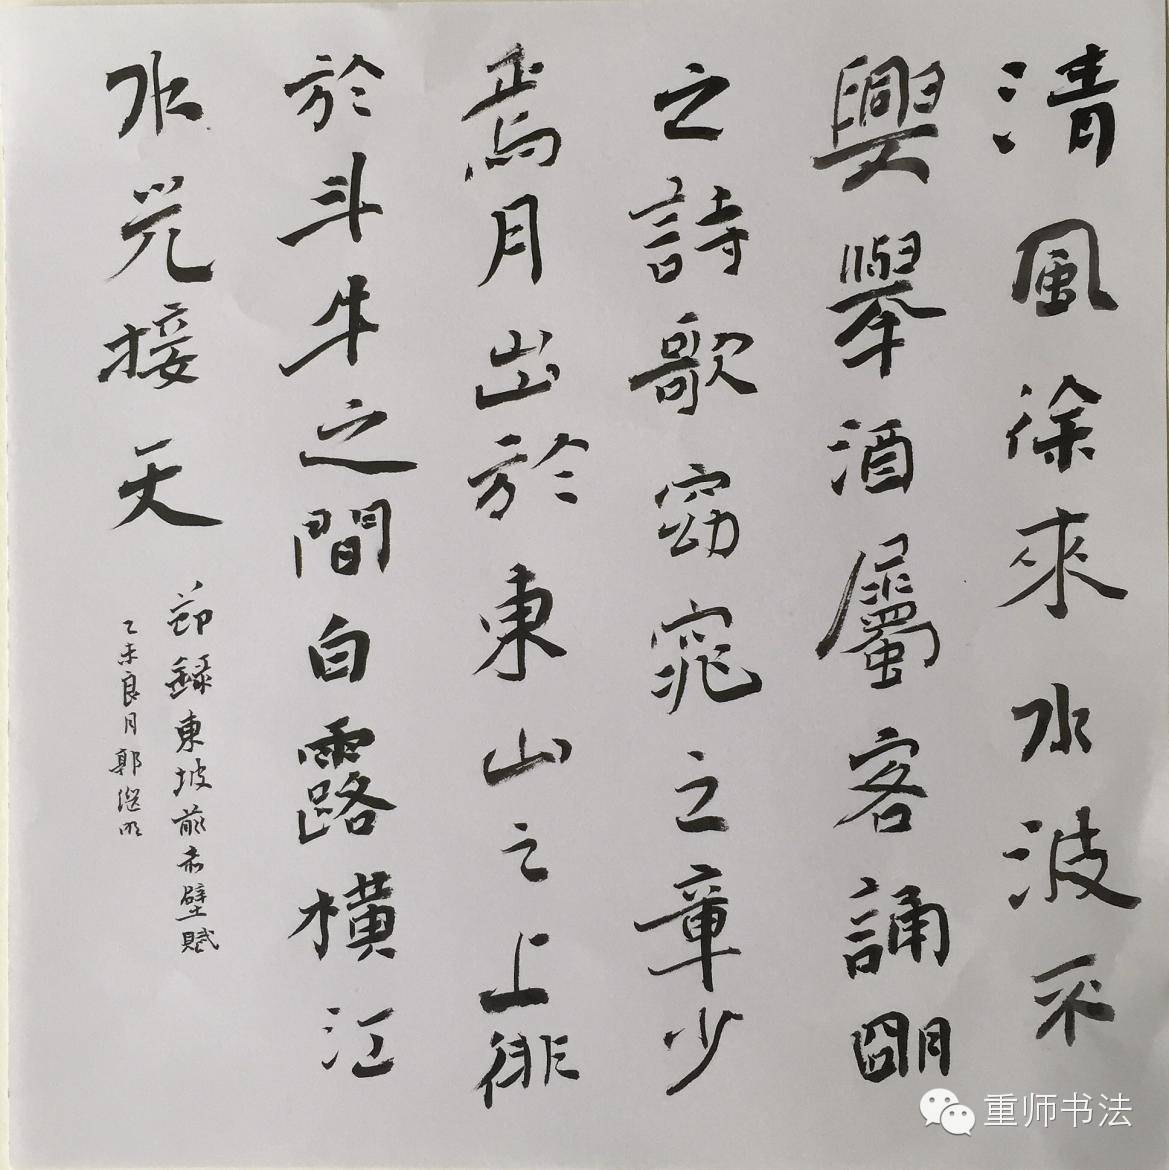 清風徐來水波不
興舉酒屬客誦朙
之詩歌窈窕之章少
焉月出於東山之上徘
於斗牛之間白露橫江
水光接天
節錄東坡前赤壁賦
乙未良月郭继明
重师书法